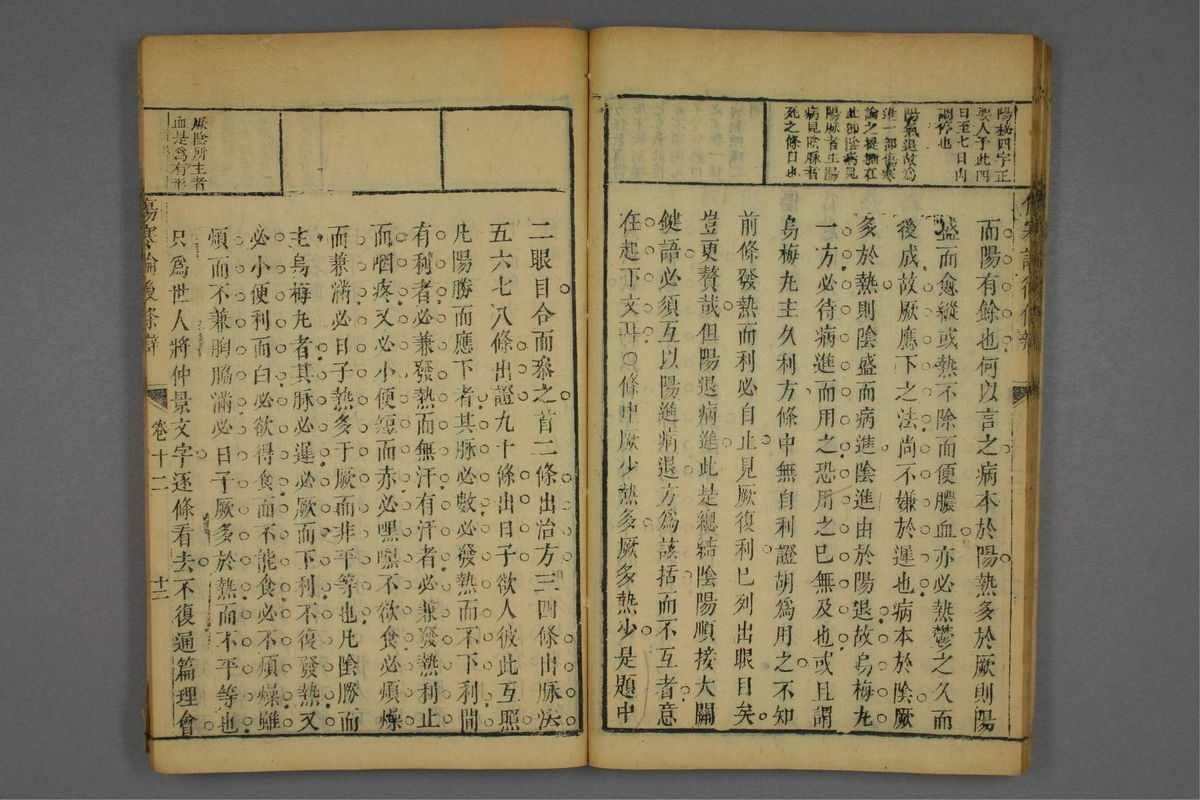 陽秘四字正
要人于此四
日至七日內
調停也
陽氣退故為
進一部傷寒
論之提綱在
此部陰病見
陽脉者生陽
病見陰脉者
死之條目也
而陽有餘也何以言之病本於陽熱多於厥則陽
盛而愈縱或熱不除而便膿血亦必熱鬱之久而
後成故厥應下之法尚不嫌於遲也病本於陰厥
多於熱則陰盛而病進陰進由於陽退故烏梅丸
一方必待病進而用之恐用之已無及也或且謂
烏梅丸主久利方條中無自利證胡為用之不知
前條發熱而利必自止見厥復利已列出眼目矣
豈更贅哉但陽退病進此是總結陰陽順接大關
鍵語必須互以陽進病退方為該括而不互者意
在起下文耳○條中厥少熱多厥多熱少是題中
二眼目合而叅之首二條出治方三四條出脉法
五六七八條出證九十條出日子欲人彼此互照
凡陽勝而應下者其脉必數必發熱而不下利間
有利者必兼發熱而無汗有汗者必兼發熱利止
而咽疼又必小便短而赤必嘿嘿不欲食必煩燥
而兼滿必日子熱多于厥而非平等也凡陰勝而
主烏梅丸者其脉必遲必厥而下利不復發熱又
必小便利而白必欲得食而不能食必不煩燥雖
煩而不兼胸脇滿必日子厥多於熱而不平等也
只為世人將仲景文字逐條看去不復通篇理會
厥陰所主者
血是為有形
傷寒論後條辯
卷十二
十二